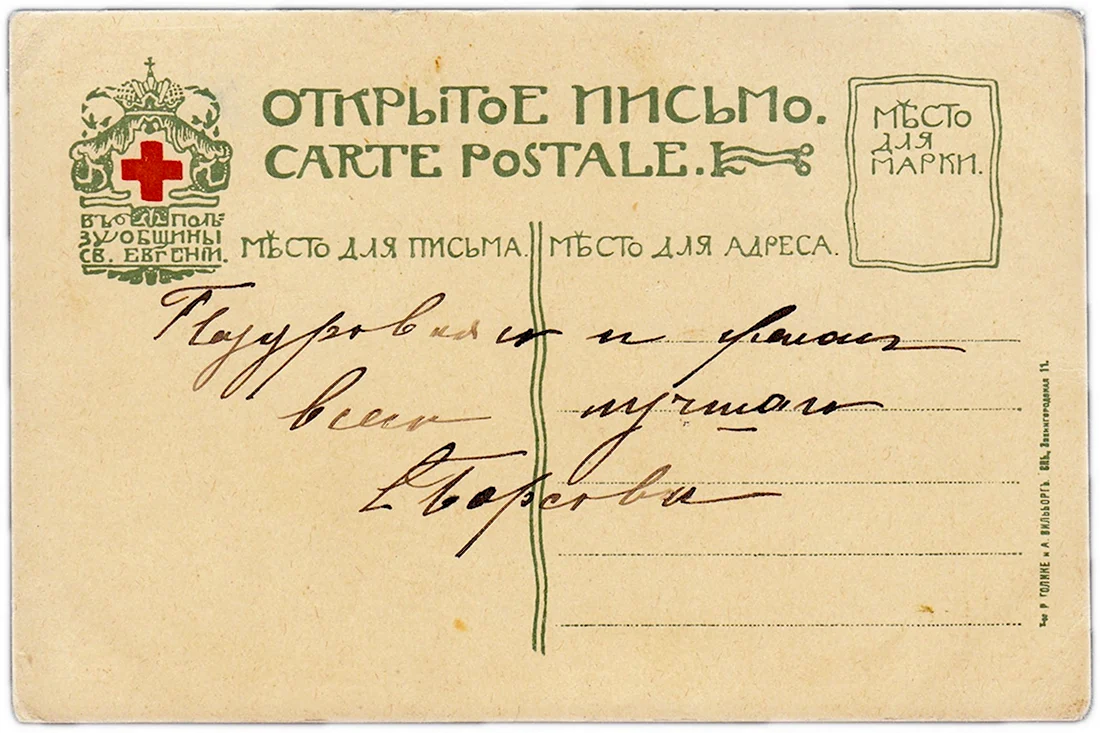 ОТКРЫТОЕ ПИСЬМО.
CARTE POSTALE.
МѢСТО
ДЛЯ
МАРКИ.
ВЪ ПОЛЬ=
ЗУ ОБЩИНЫ
СВ. ЕВГЕНІИ.
МѢСТО ДЛЯ ПИСЬМА.
МѢСТО ДЛЯ АДРЕСА.
Поздровляю и желаю
всего лучшаго
Т-во Р. ГОЛИКЕ и А. ВИЛЬБОРГЪ. СПБ., Звенигородская 11.